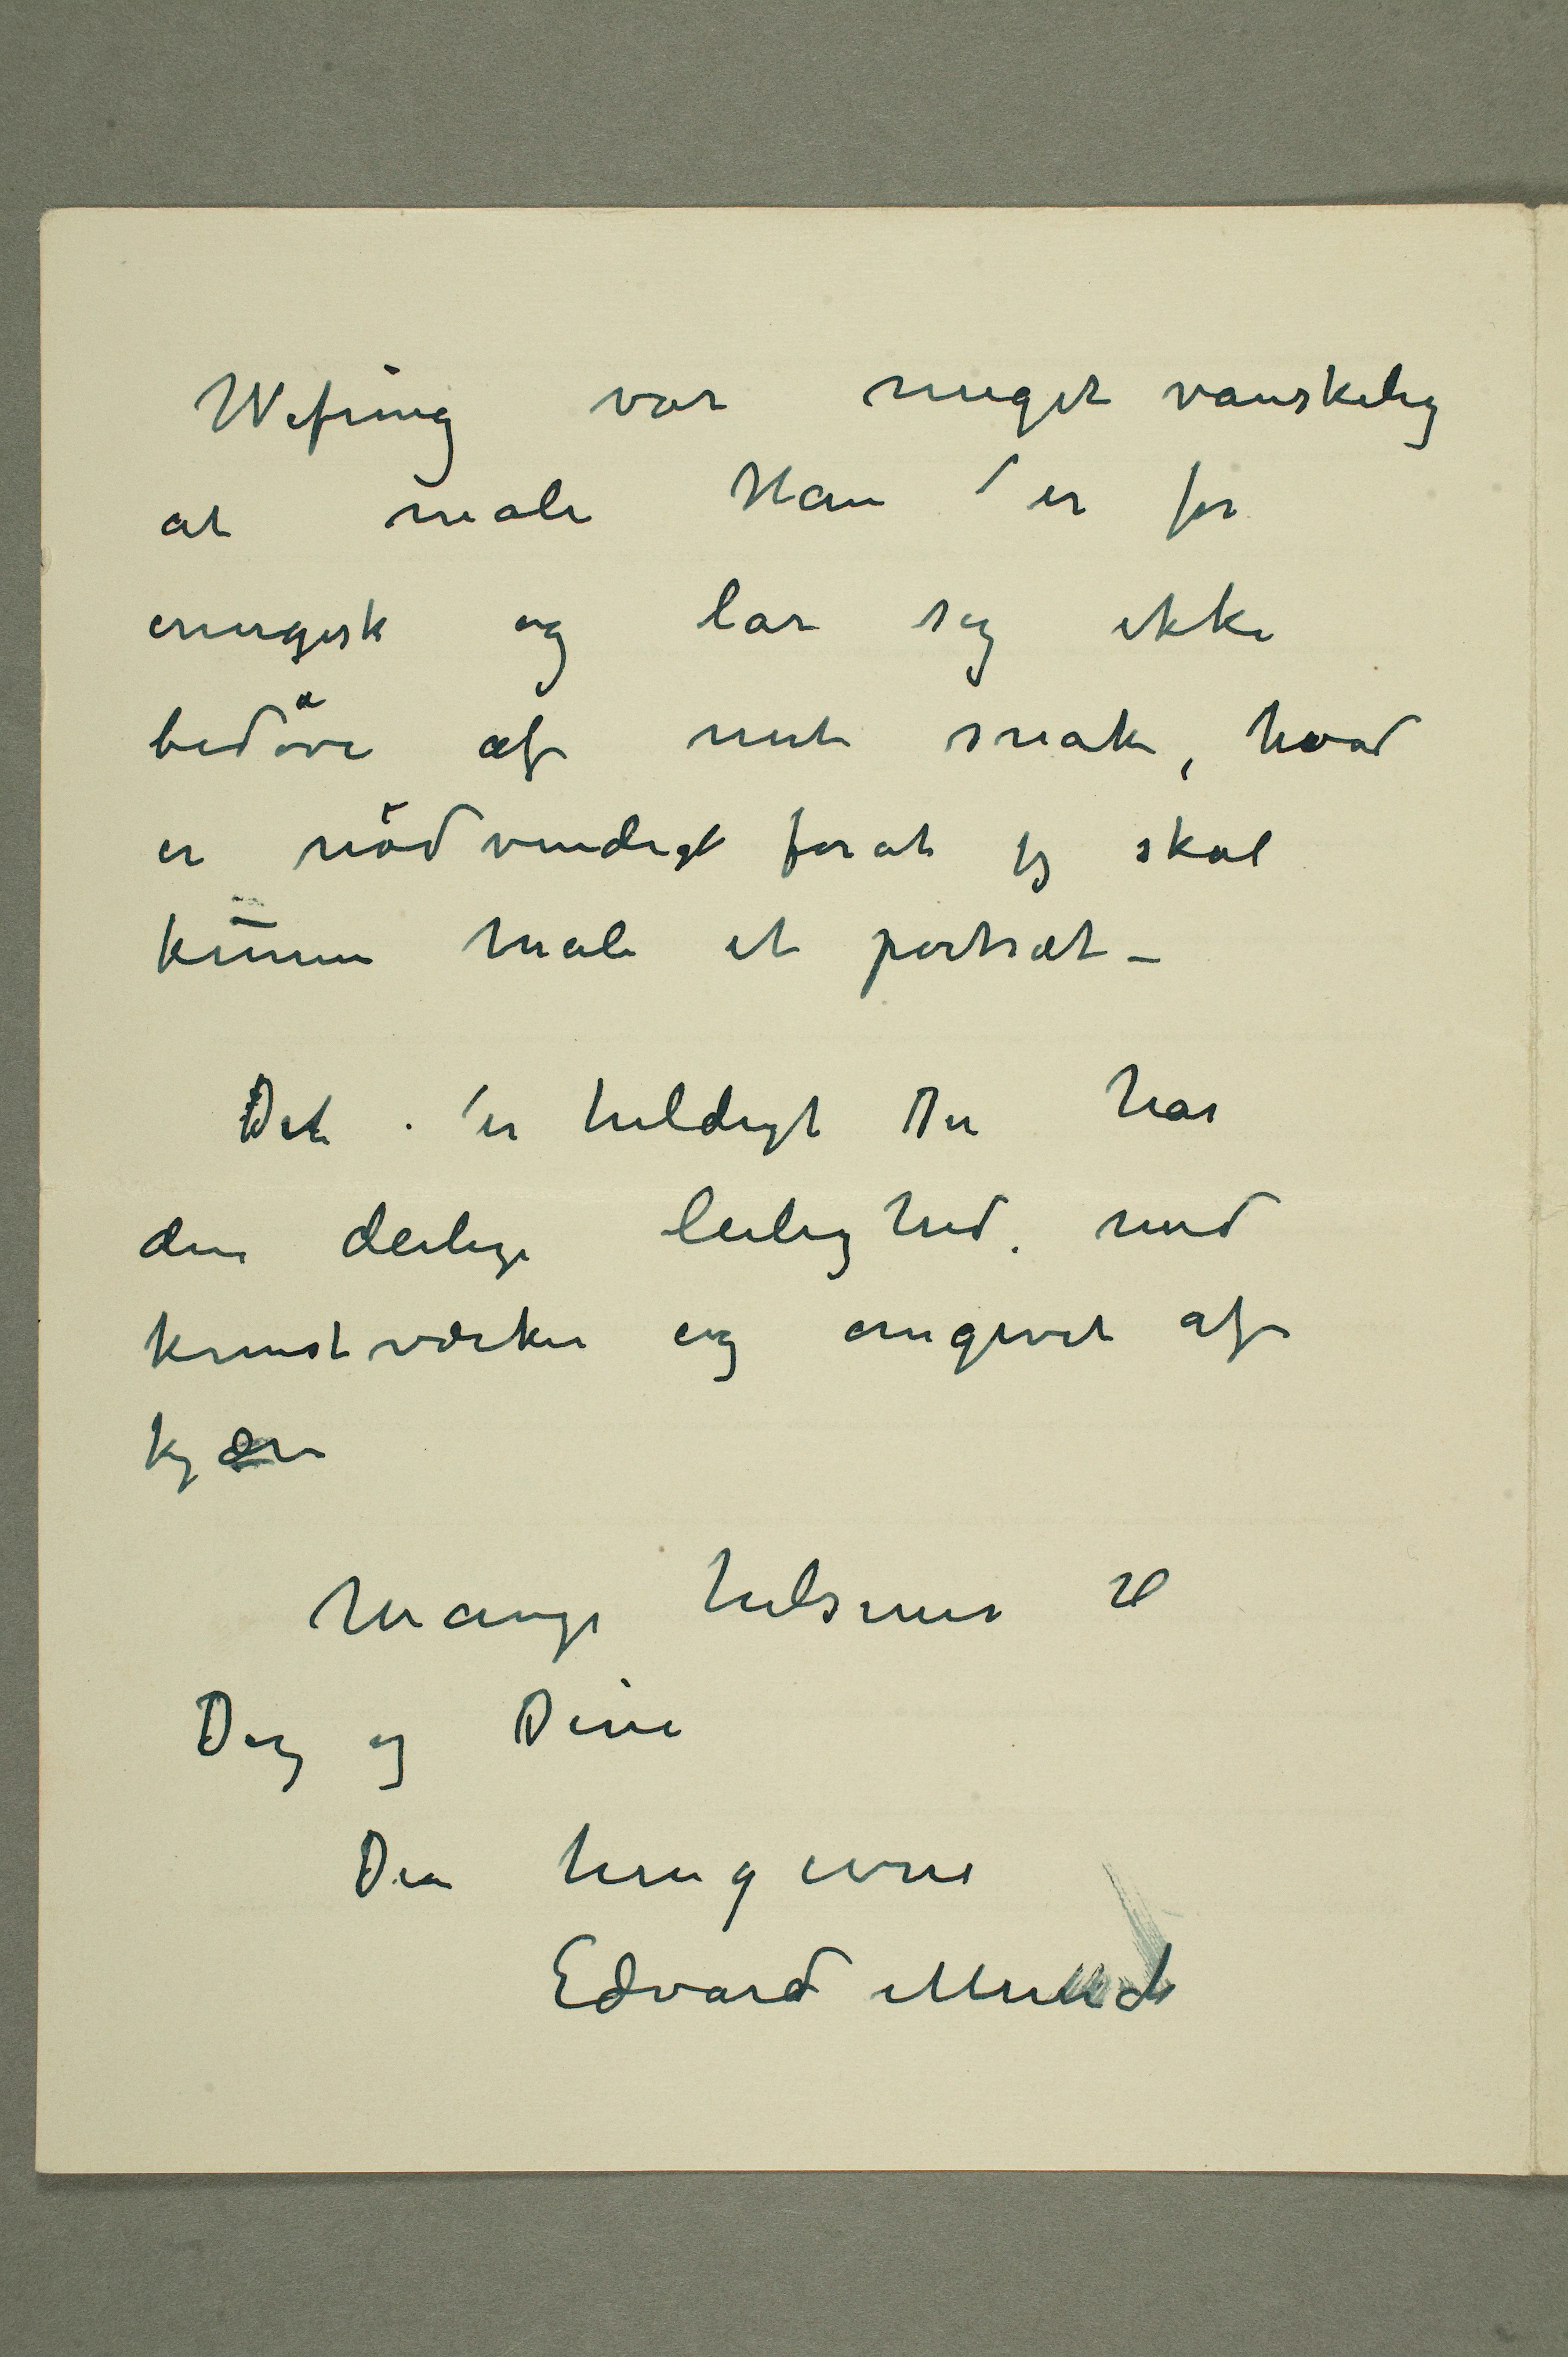 Wefring var meget vanskelig
at male Han er for
energisk og lar sig ikke
bedøve af min snak, hvad
er nødvendigt forat jeg skal
kunne male et portræt –
Det er heldigt Du har
den deilige leilighed med
kunstværker og omgivet af
kjære
Mange hilsener til
Dig og Dine
Din hengivne
Edvard Munch